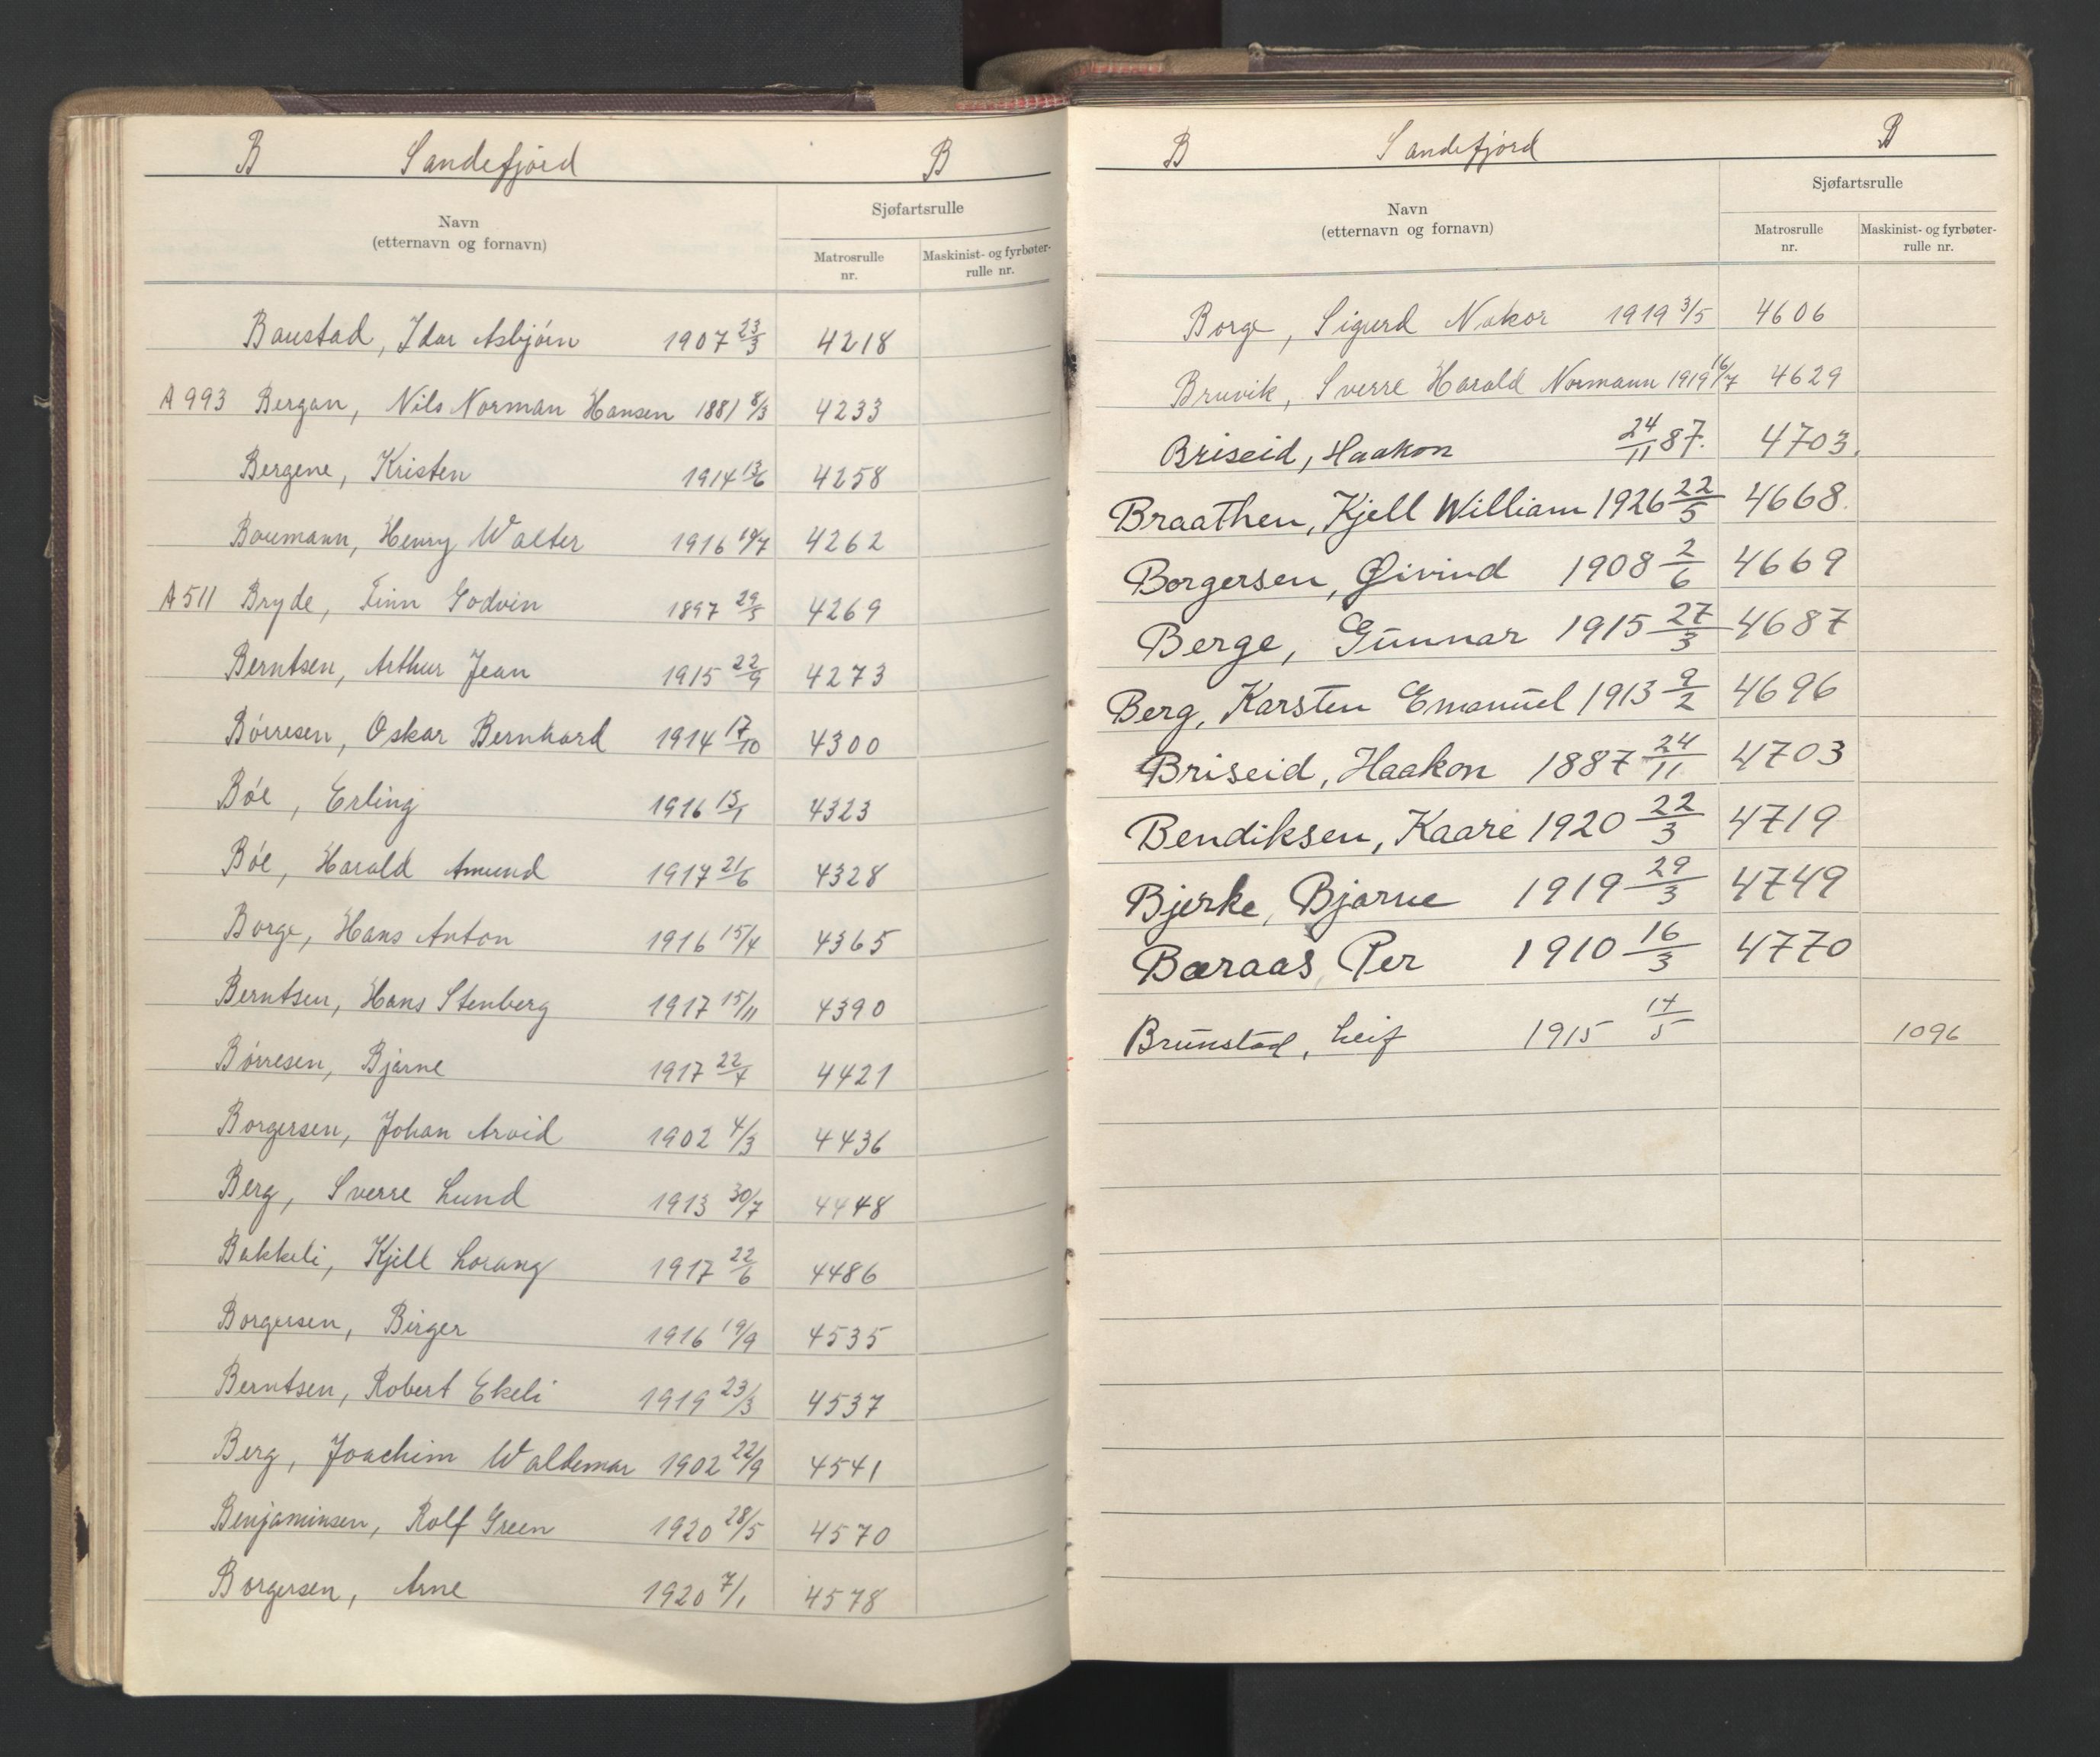 B Sandefjord B
Navn
(etternavn og fornavn)
Sjøfartsrulle
Matrosrulle nr.
Maskinist- og fyrbøter-rulle nr.
Baustad, Idar Asbjørn 1907 23/3 4218
A 993 Bergan, Nils Norman Hansen 1881 8/3 4233
Bergene, Kristen 1914 13/6 4258
Baumann, Henry Walter 1916 19/7 4262
A 511 Bryde, Finn Godvin 1897 29/5 4269
Berntsen, Arthur Jean 1915 22/9 4273
Børresen, Oskar Bernhard 1914 17/10 4300
Bøe, Erling 1916 13/1 4323
Bøe, Harald Amund 1917 21/6 4328
Borge, Hans Anton 1916 15/4 4365
Berntsen, Hans Stenberg 1917 15/11 4390
Børresen, Bjarne 1917 22/4 4421
Borgersen, Johan Arvid 1902 4/3 4436
Berg, Sverre Lund 1913 30/7 4448
Bakkeli, Kjell Lorang 1917 22/6 4486
Borgersen, Birger 1916 19/9 4535
Berntsen, Robert Ekeli 1919 23/3 4537
Berg, Joachim Waldemar 1902 22/9 4541
Benjaminsen, Rolf Green 1920 28/5 4570
Borgersen, Arne 1920 7/1 4578
B Sandefjord B
Navn
(etternavn og fornavn)
Sjøfartsrulle
Matrosrulle nr.
Maskinist- og fyrbøter-rulle nr.
Borge, Sigurd Nakor 1919 3/5 4606
Bruvik, Sverre Harald Normann 1919 16/7 4629
Briseid, Haakon 24/11 87. 4703.
Braathen, Kjell William 1926 22/5 4668.
Borgersen, Øivind 1908 2/6 4669
Berge, Gunnar 1915 27/3 4687
Berg, Karsten Emanuel 1913 9/2 4696
Briseid, Haakon 1887 24/11 4703
Bendiksen, Kaare 1920 22/3 4719
Bjerke, Bjarne 1919 29/3 4749
Bæraas, Per 1910 16/3 4770
Brunstad, Leif 1915 14/5 1096